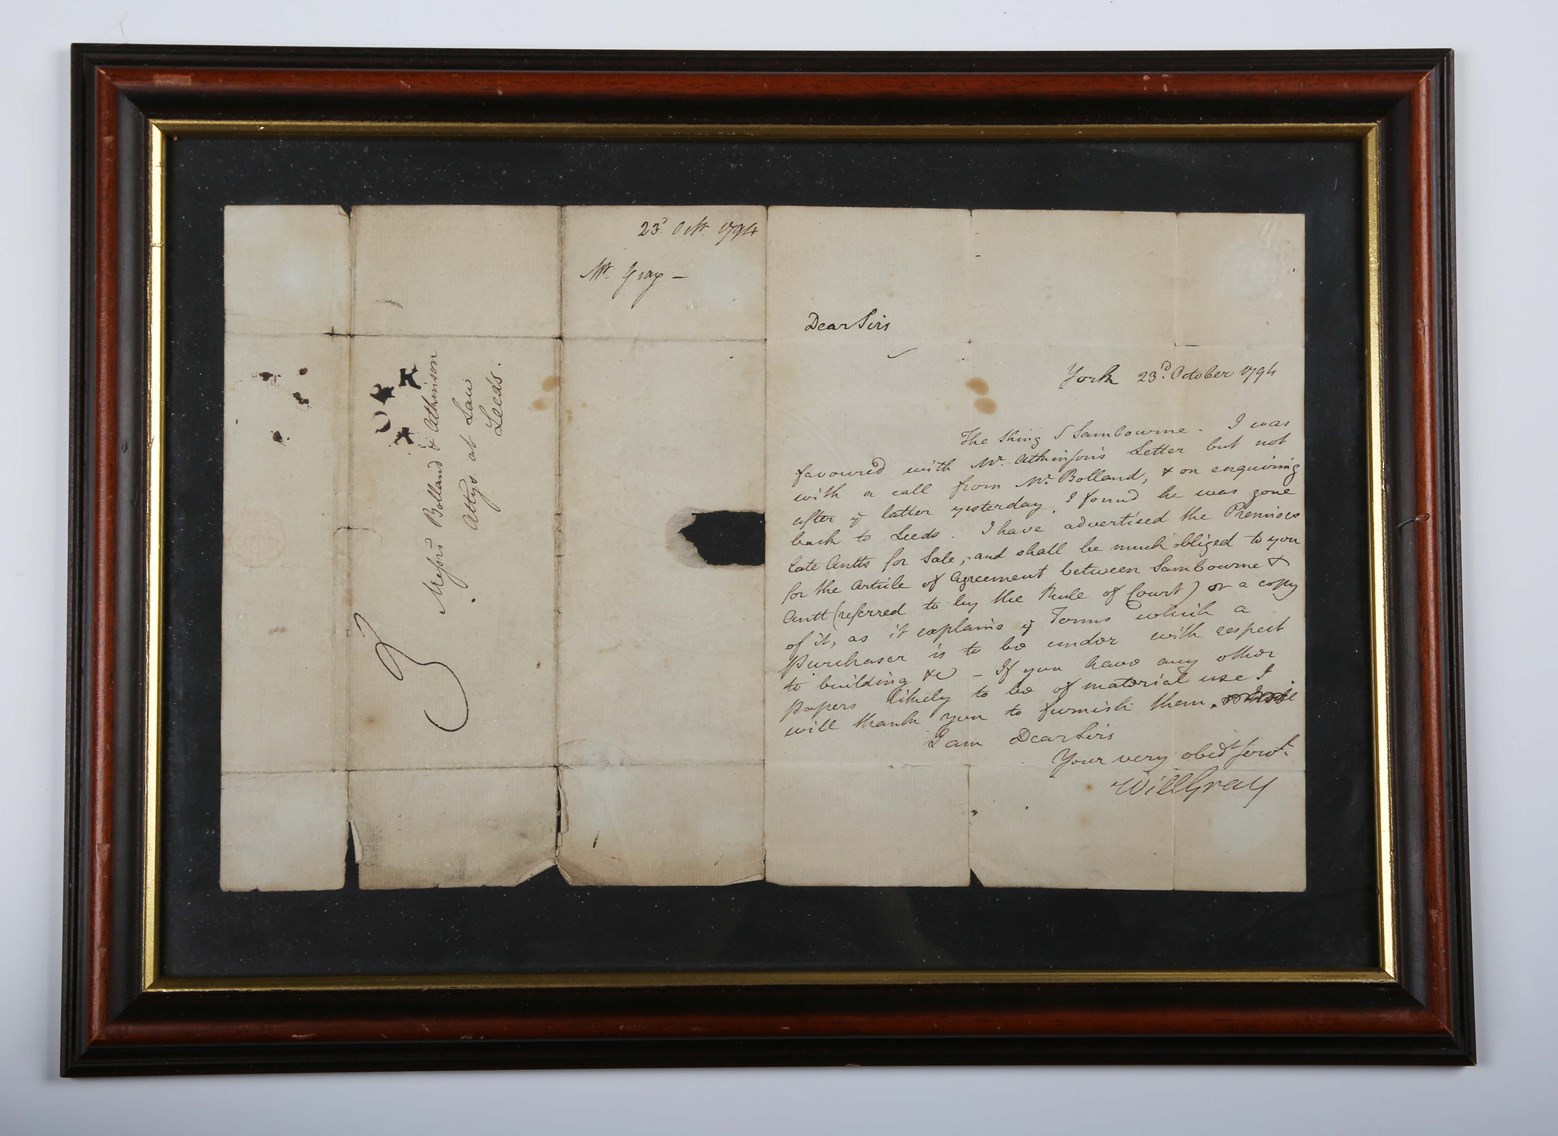 23d Octr. 1794
Mr. Gray —
YORK
Messrs Bolland & Atkinson
Attys at Law
Leeds.
3
Dear Sirs
York 23d. October 1794
The King v Sambourne. I was
favoured with Mr. Atkinson's Letter but not
with a call from Mr. Bolland, & on enquiring
after ye latter yesterday, I found he was gone
back to Leeds. I have advertised the Premises
late Antts for Sale, and shall be much obliged to you
for the Article of Agreement between Sambourne &
Antt (referred to by the Rule of Court) or a copy
of it, as it explains ye Terms which a
purchaser is to be under with respect
to building &c — If you have any other
papers likely to be of material use I
will thank you to furnish them.
I am Dear Sirs
Your very obedt servt.
Will Gray